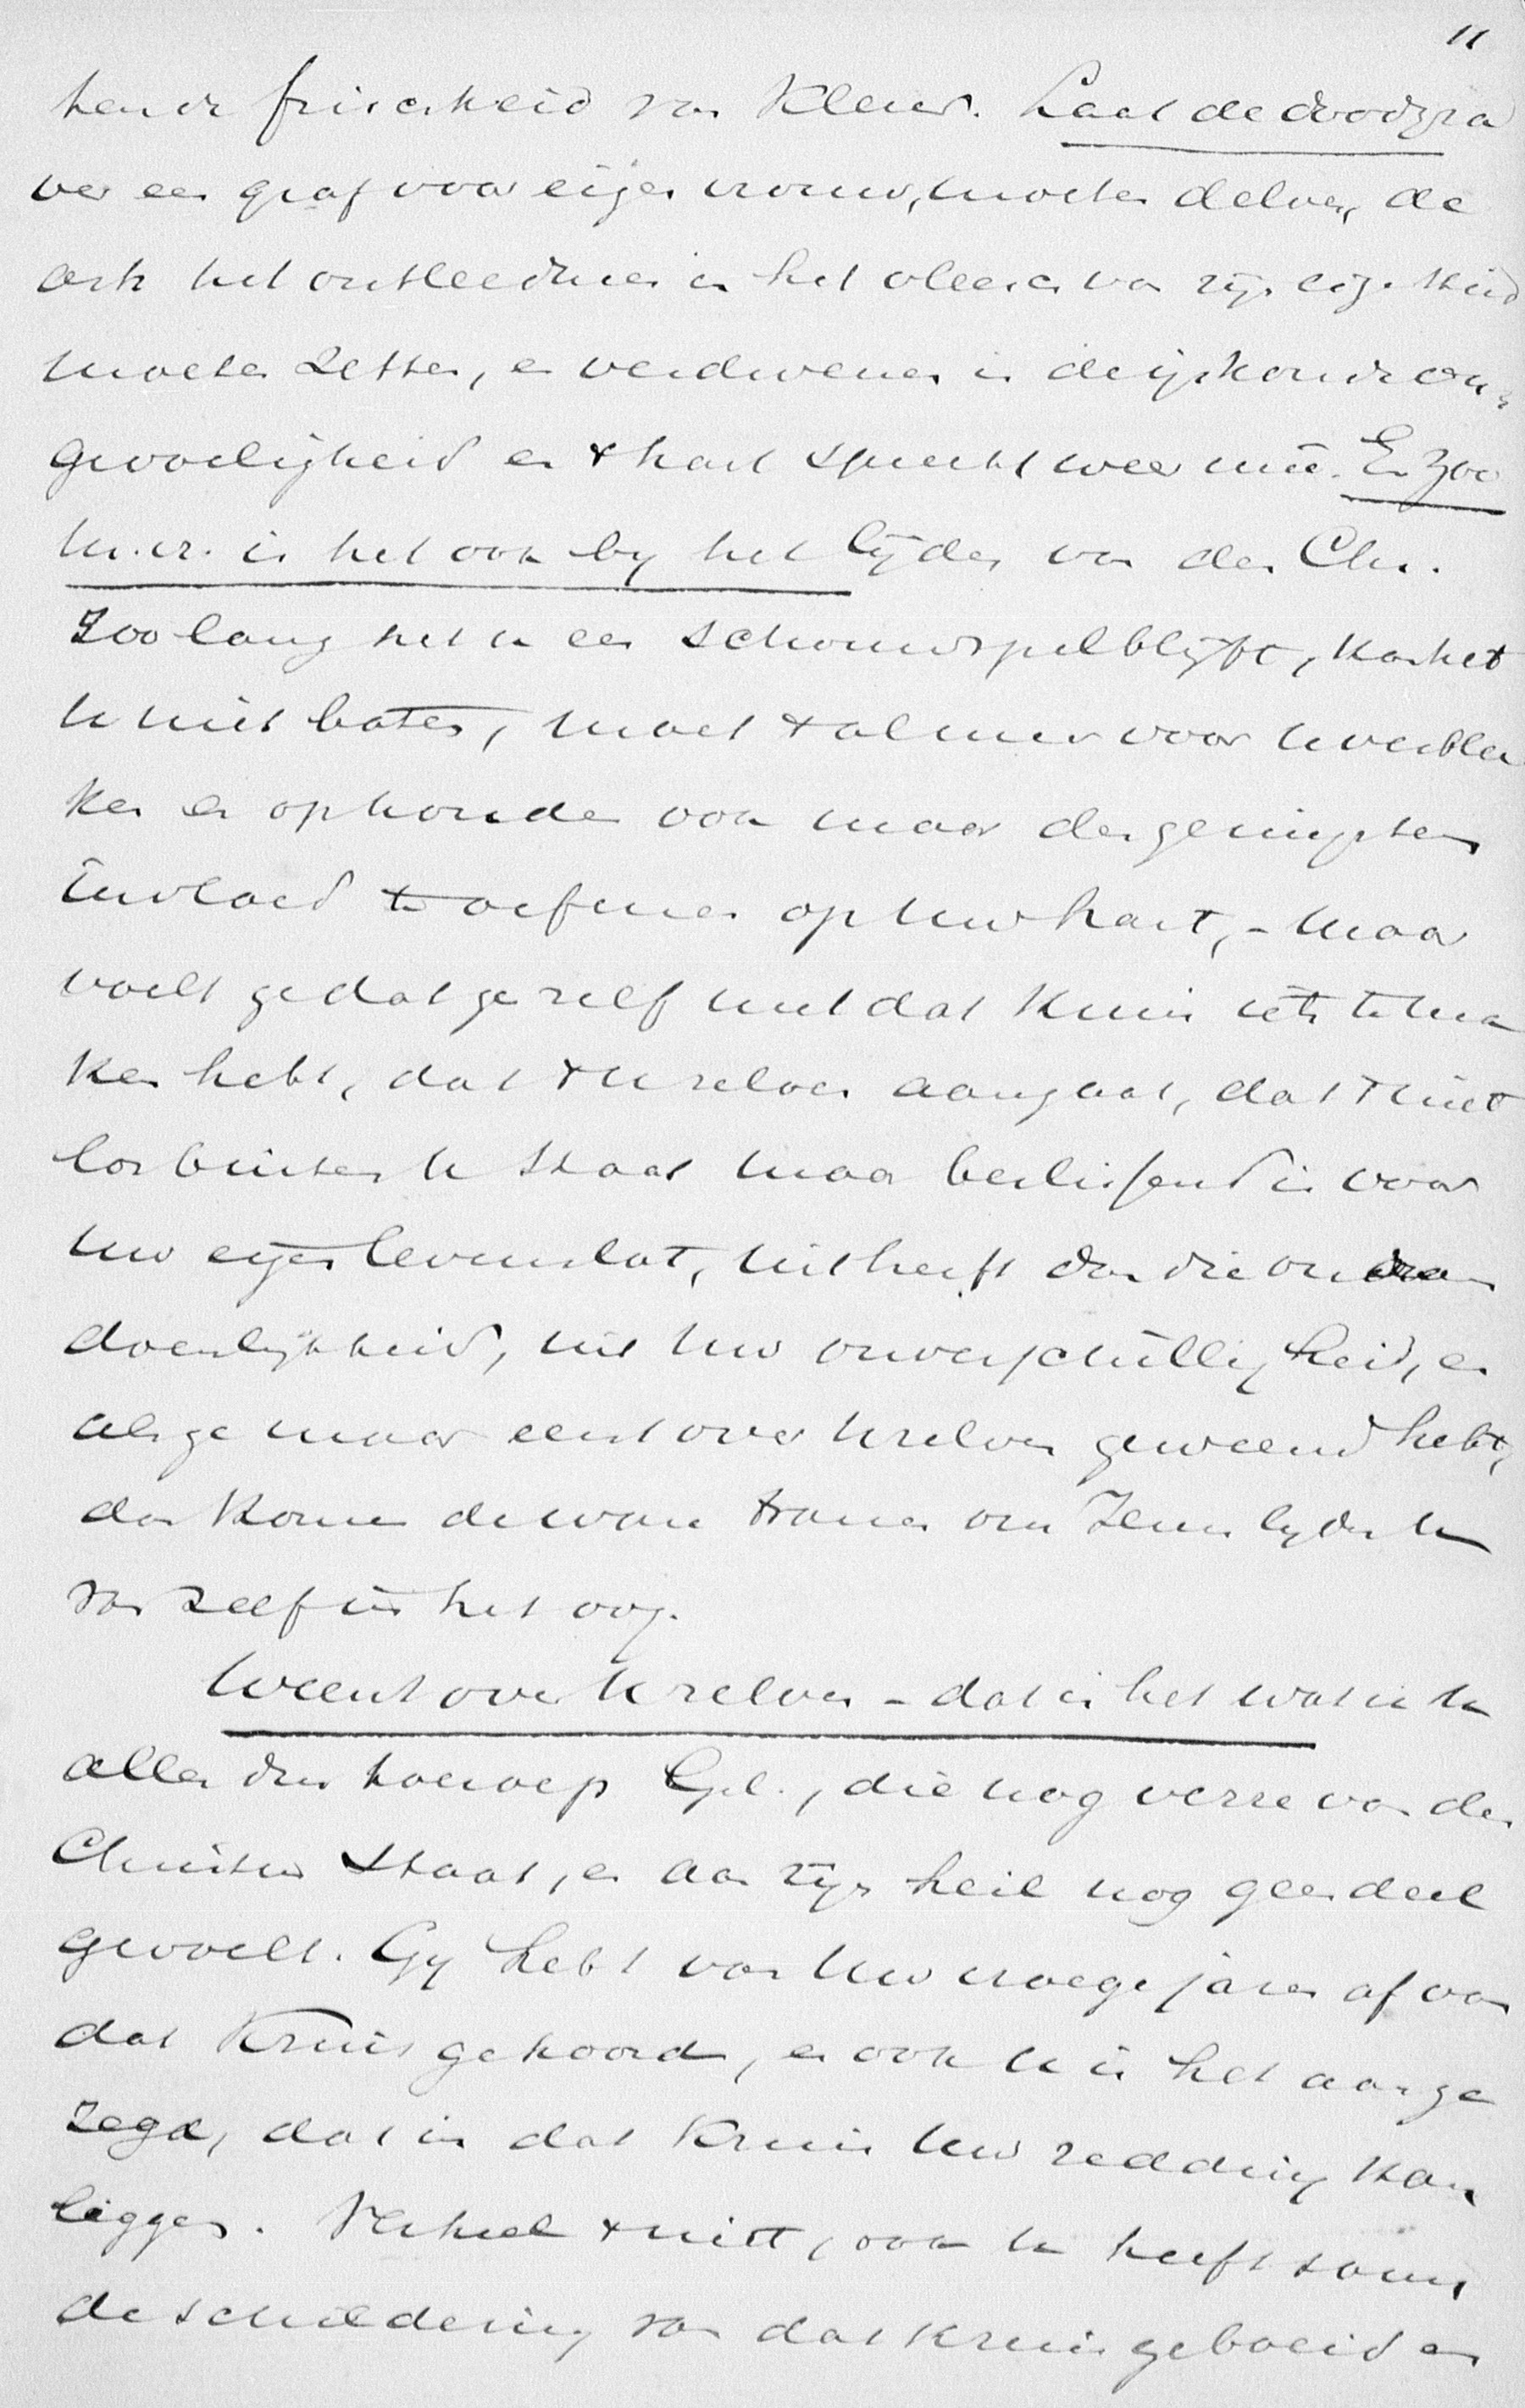 11
hunr frischheid van kleur. Laat de doodgra
ver een graf voor eigen vrouw, moeten delven, de
arts het ontleedmes in het vleesch van zijn eigen kind
moeten zetten, en verdwenen is de ijskoude on-
gevoeligheid en 't hart spreekt weer mee. En zoo
m.vr. is het ook by het lijden van den Chr.
Zoolang het u een schouwspel blijft, kan het
u niet baten, moet 't almeer voor u verble
ken en ophouden ook maar den geringsten
invloed te oefenen op uw hart, - maar
voelt ge dat ge zelf met dat kruis iets te ma
ken hebt, dat 't u zelven aangaat, dat 't niet
los buiten u staat maar beslissend is voor
uw eigen levenslot, uit heeft dan die onaan
doenlijkheid, uit uw onverschilligheid, en
als ge maar eerst over u zelven geweend hebt,
dan komen de ware tranen om Jezus lyden u
van zelf in het oog.
Weent over u zelven - dat is het wat ik u
allen dus toeroep Gel., die nog verre van den
Christus staat, en aan zijn heil nog geen deel
gevoelt. Gy hebt van uw vroege jaren af van
dat Kruis gehoord, en ook u is het aange
zegd, dat in dat Kruis uw redding kan
liggen. Verheel 't niet, ook u heeft soms
de schildering van dat kruis geboeid en